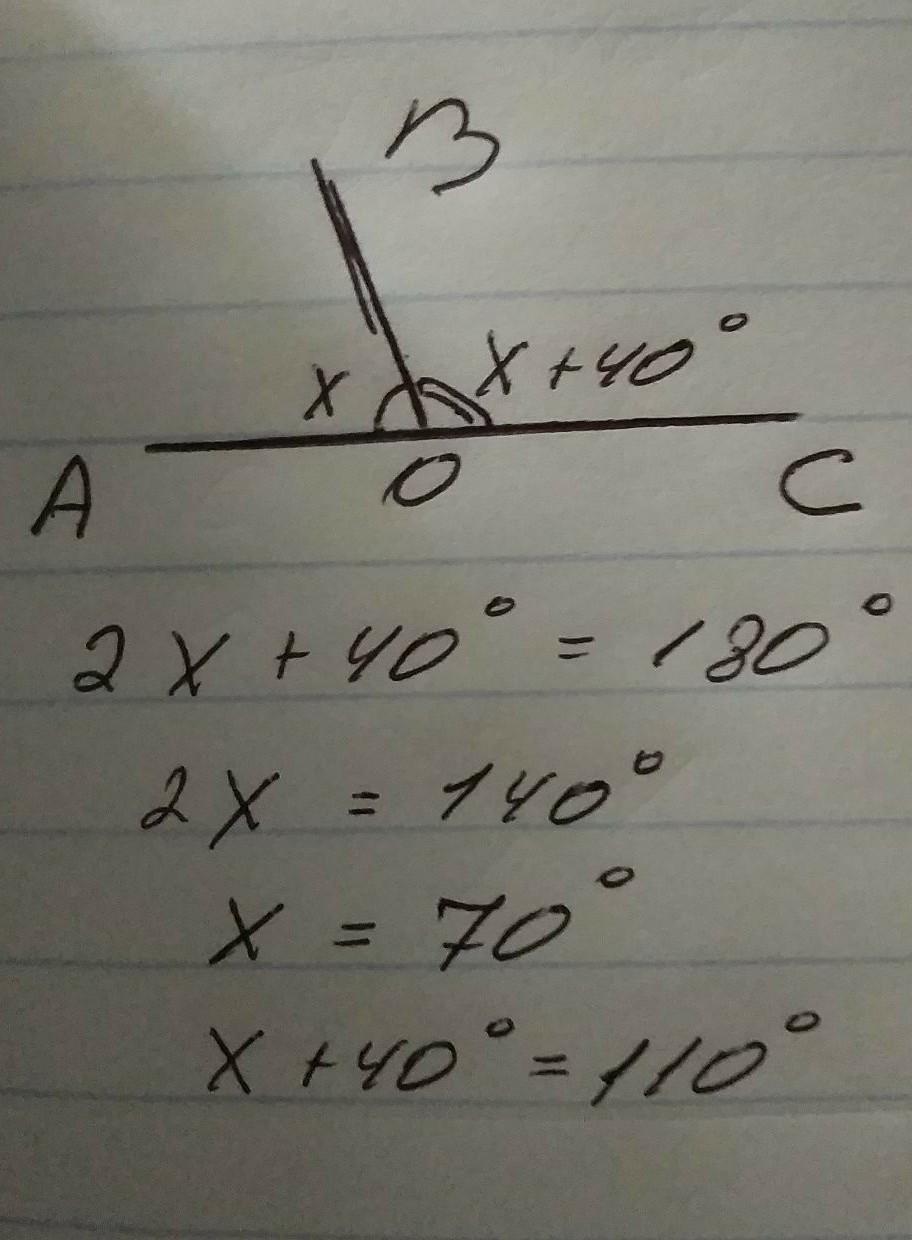 B
x x+40°
A O C
2x + 40° = 180°
2x = 140°
x = 70°
x + 40° = 110°